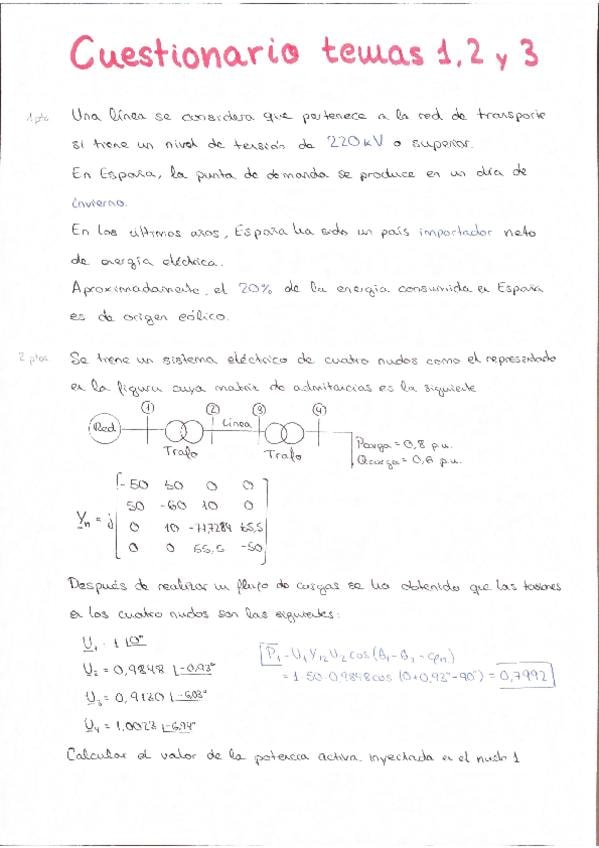 Cuestionario temas 1, 2 y 3
1 pto Una línea se considera que pertenece a la red de transporte
si tiene un nivel de tensión de 220 kV o superior.
En España, la punta de demanda se produce en un día de
invierno.
En los últimos años, España ha sido un país importador neto
de energía eléctrica.
Aproximadamente, el 20% de la energía consumida en España
es de origen eólico.
2 ptos Se tiene un sistema eléctrico de cuatro nudos como el representado
en la figura cuya matriz de admitancias es la siguiente
① ② ③ ④
Red Línea
Trafo Trafo
Pcarga = 0,8 p.u.
Qcarga = 0,6 p.u.
-50 50 0 0
50 -60 10 0
Yn = j
0 10 55,5
0 0 55,5 -50
Después de realizar un flujo de cargas se ha obtenido que las tensiones
en los cuatro nudos son las siguientes:
U1 = 1 ∠0°
U2 = 0,9848 ∠-0,93°
U3 = 0,9130 ∠-6,03°
U4 = 1,0023 ∠-6,94°
P1 = U1 Y12 U2 cos(θ1 - θ2 - φ12)
= 1·50·0,9848 cos (0+0,93°-90°) = 0,7992
Calcular el valor de la potencia activa inyectada en el nudo 1